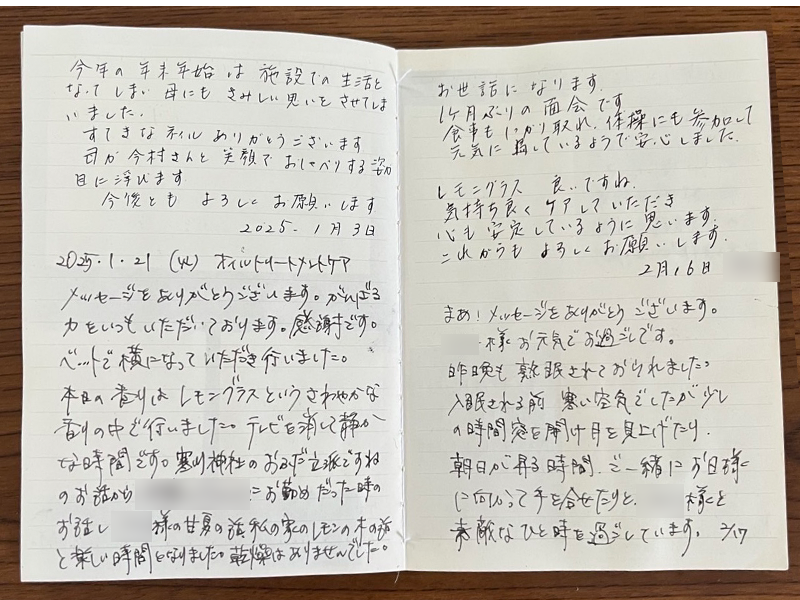 今年の年末年始は施設での生活と
なってしまい母にもさみしい思いをさせてしま
いました。
すてきなネイルありがとうございます
母が今村さんと笑顔でおしゃべりする姿が
目に浮びます
今後ともよろしくお願いします
2025. 1月3日
2025.1.21 (火) オイルトリートメントケア
メッセージをありがとうございます。がんばる
力をいつもいただいております。感謝です。
ベットで横になっていただき行いました。
本日の香りはレモングラスというさわやかな
香りの中で行いました。テレビを消して静か
な時間です。寒川神社のおふだ立派ですね
のお話から にお勤めだった時の
お話し 様の甘夏の話私の家のレモンの木の話
と楽しい時間となりました。乾燥はありませんでした。
お世話になります。
1ヶ月ぶりの面会です
食事もしっかり取れ、体操にも参加して
元気に過しているようで安心しました。
レモングラス 良いですね。
気持ち良くケアしていただき
心も安定しているように思います。
これからも よろしくお願いします。
2月16日
まぁ!メッセージをありがとうございます。
様お元気でお過ごしです。
昨晩も熟眠されておられました。
入眠される前 寒い空気でしたが少し
の時間窓を開け月を見上げたり、
朝日が昇る時間、ご一緒にお日様
に向かって手を合せたりと、 様と
素敵なひと時を過ごしています。 2/17